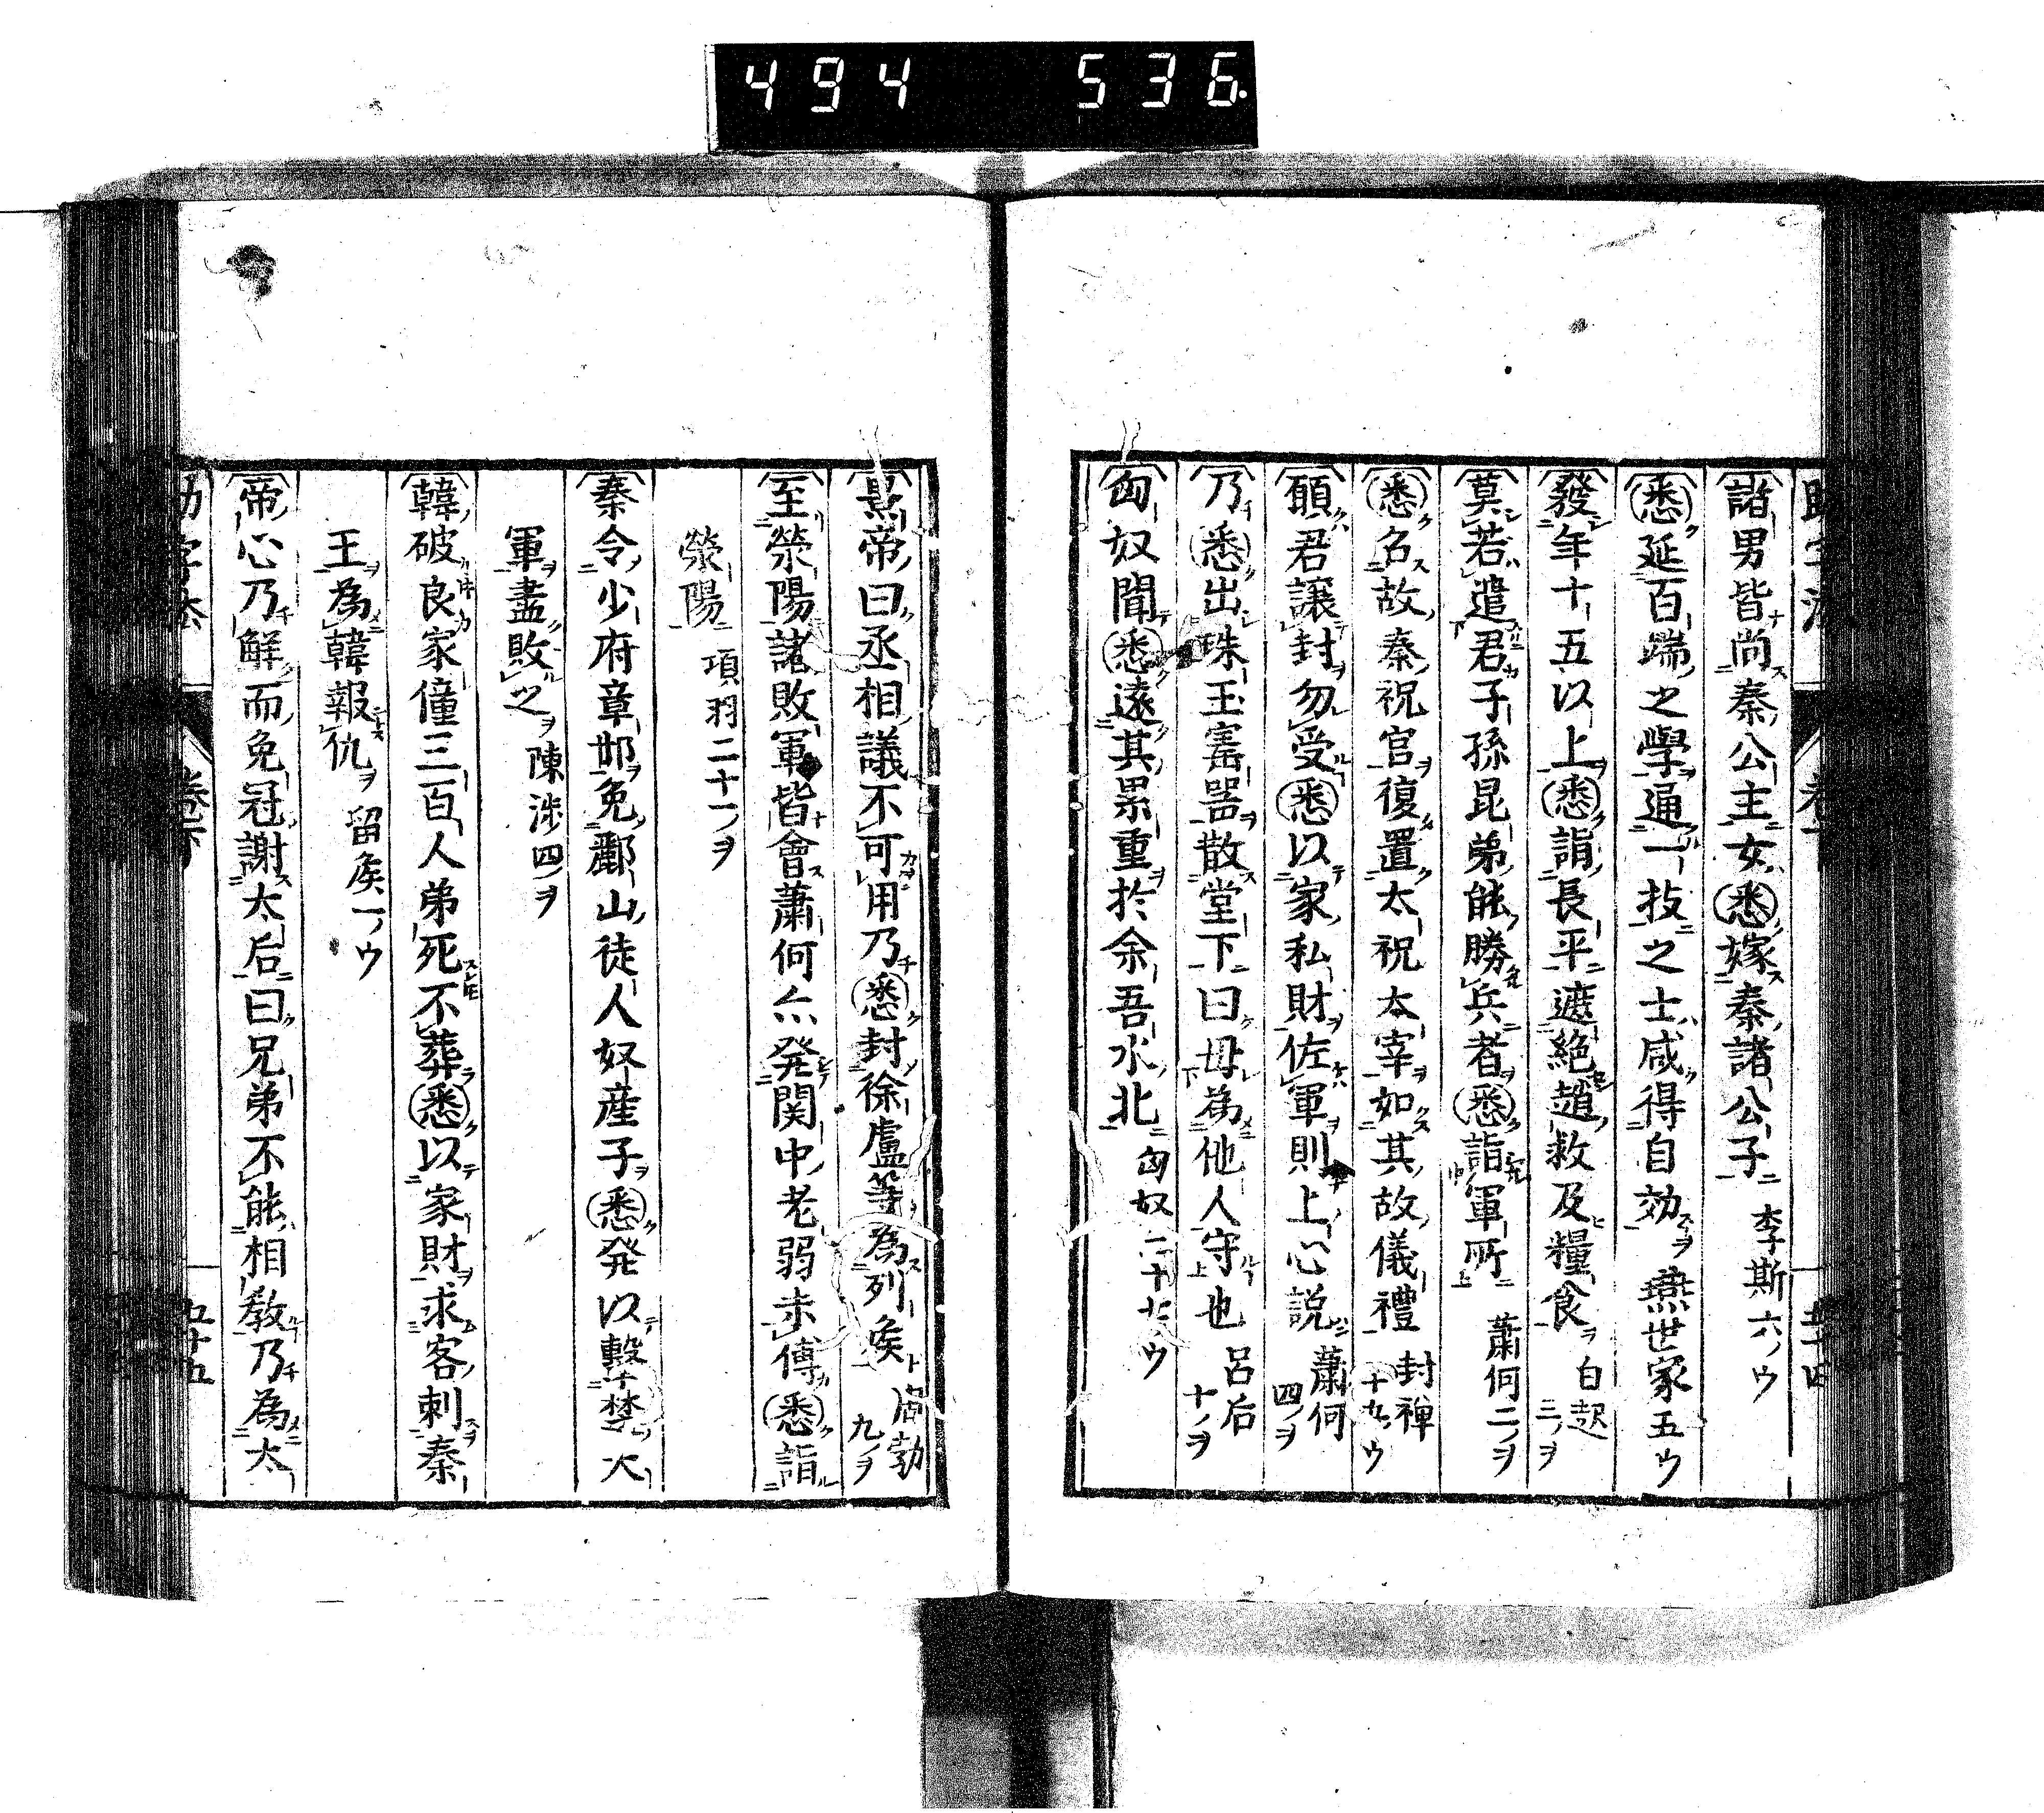 494 536.
諸男皆尚秦公主女悉嫁秦諸公子 李斯六ノウ
悉延百端之學通一技之士咸得自効 燕世家五ウ
發年十五以上悉詣長平遮絕趙救及糧食 白起三ノヲ
莫若遣君子孫昆弟能勝兵者悉詣軍所 蕭何二ノヲ
悉召故秦祝官復置太祝太宰如其故儀禮 封禅十九ノウ
願君讓封勿受悉以家私財佐軍則上心説 蕭何四ノヲ
乃悉出珠玉寳噐散堂下曰毋為他人守也 呂后十ノヲ
匈奴聞悉遠其累重於余吾水北 匈奴二十七ウ
景帝曰丞相議不可用乃悉封徐盧等為列矦 周勃九ノヲ
至滎陽諸敗軍皆會蕭何亦発関中老弱未傅悉詣
滎陽 項羽二十一ノヲ
秦令少府章邯免酈山徒人奴産子悉発以擊楚大
軍盡敗之 陳涉四ノヲ
韓破良家僮三百人弟死不葬悉以家財求客刺秦
王為韓報仇 留矦一ノウ
帝心乃解而免冠謝太后曰兄弟不能相教乃為太
五十五